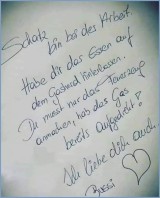 Schatz
bin bei der Arbeit.
Habe dir das Essen auf
dem Gasherd hinterlassen.
Du musst nur das Feuerzeug
anmachen, hab das Gas
bereits aufgedreht!
Ich liebe dich auch
Bussi